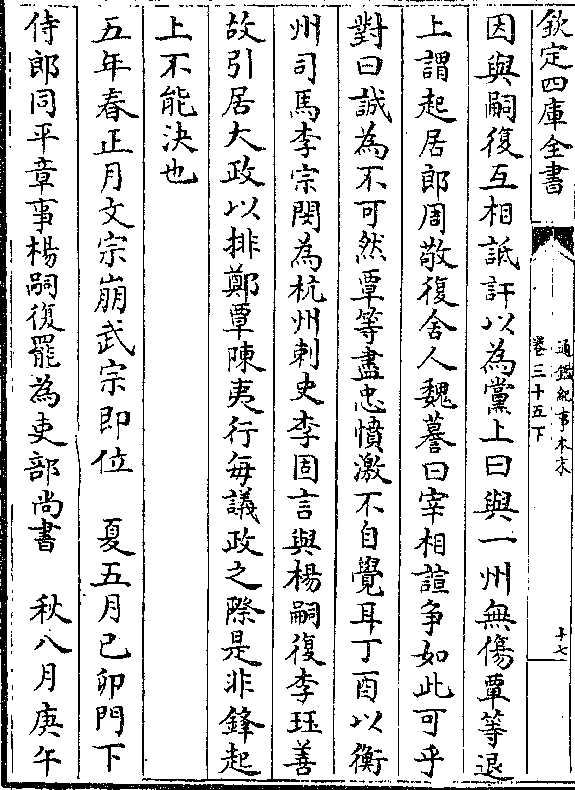 欽定四庫全書
通鑑紀事本末
卷三十五下
十七
因與嗣復互相詆訐以為黨上曰與一州無傷覃等退
上謂起居郎周敬復舍人魏䕫曰宰相諠爭如此可乎
對曰誠為不可然覃等盡忠憤激不自覺耳丁酉以衡
州司馬李宗閔為杭州刺史李固言與楊嗣復李珏善
故引居大政以排鄭覃陳夷行每議政之際是非鋒起
上不能決也
五年春正月文宗崩武宗即位　夏五月己卯門下
侍郎同平章事楊嗣復罷為吏部尚書　秋八月庚午